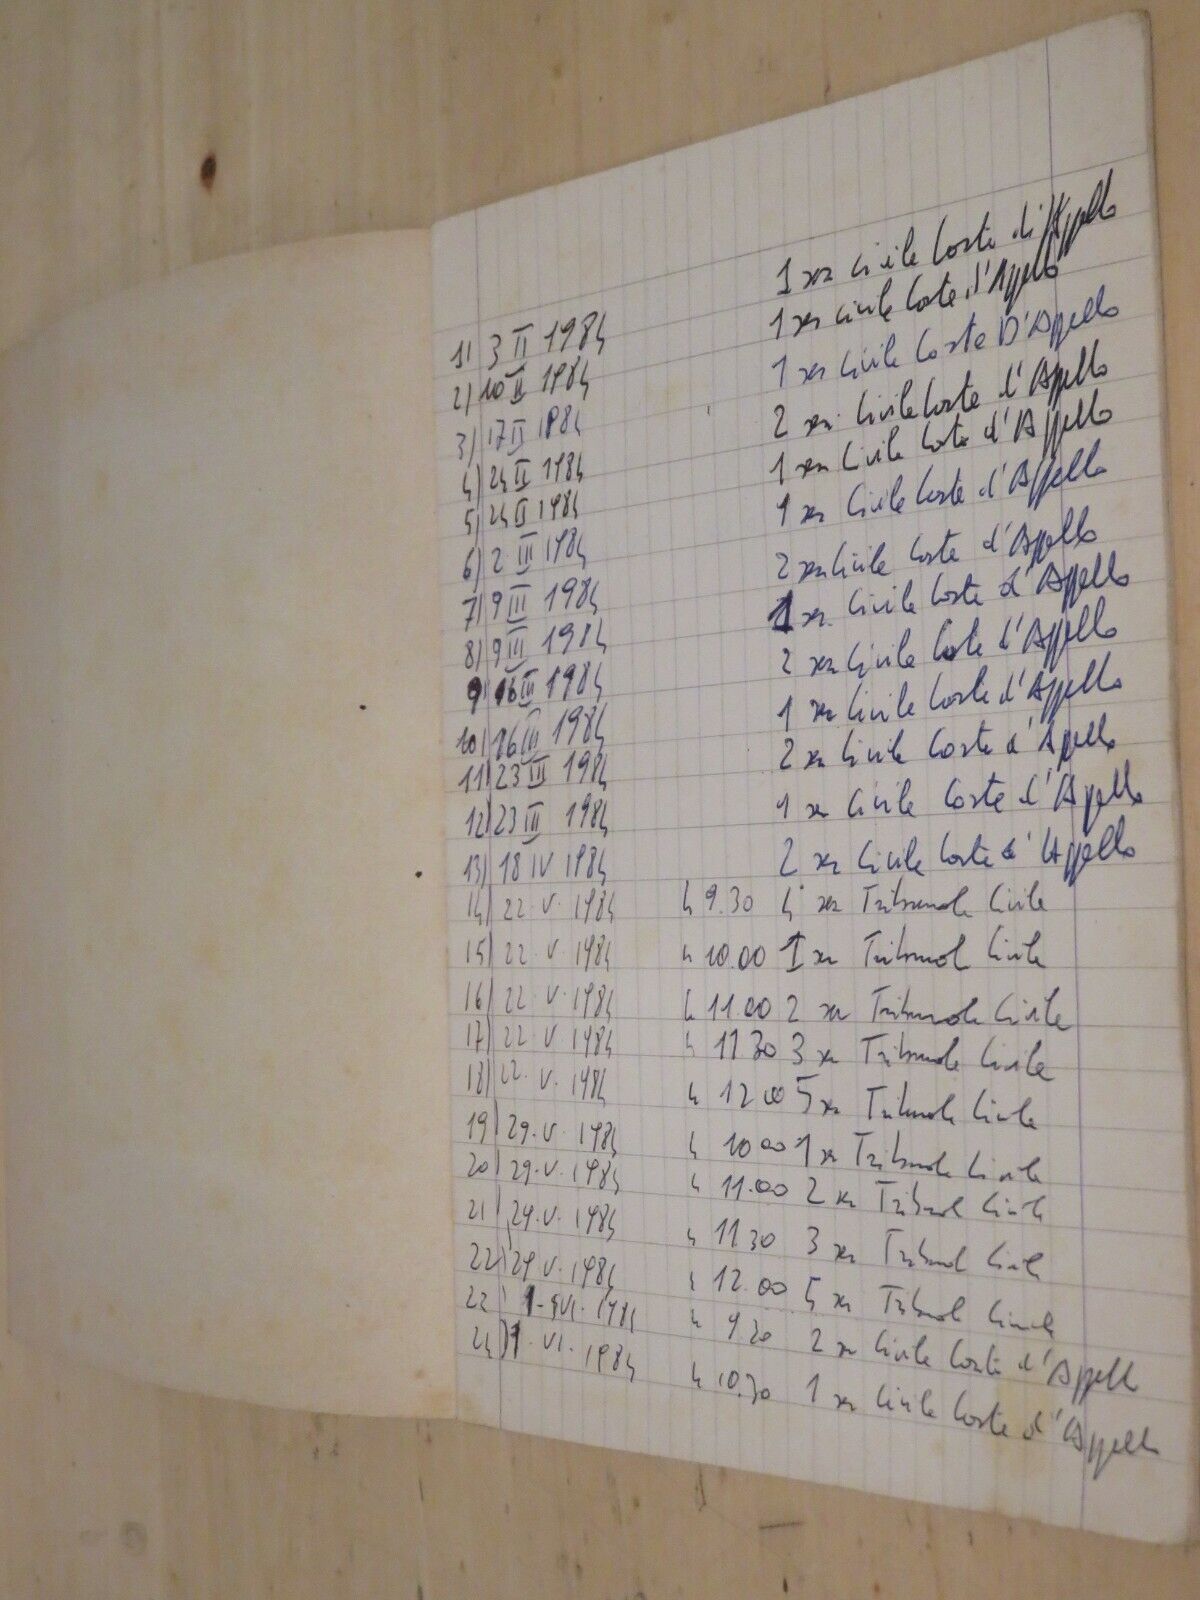 1) 3 II 1984 1 sez Civile Corte di Appello
2) 10 II 1984 1 sez Civile Corte d'Appello
3) 17 II 1984 1 sez Civile Corte D'Appello
4) 24 II 1984 2 sez Civile Corte d'Appello
5) 24 II 1984 1 sez Civile Corte d'Appello
6) 2 III 1984 1 sez Civile Corte d'Appello
7) 9 III 1984 2 sez Civile Corte d'Appello
8) 9 III 1984 1 sez Civile Corte d'Appello
9) 16 III 1984 2 sez Civile Corte d'Appello
10) 16 III 1984 1 sez Civile Corte d'Appello
11) 23 III 1984 2 sez Civile Corte d'Appello
12) 23 III 1984 1 sez Civile Corte d'Appello
13) 18 IV 1984 2 sez Civile Corte d'Appello
14) 22. V. 1984 h 9.30 4 sez Tribunale Civile
15) 22. V. 1984 h 10.00 1 sez Tribunale Civile
16) 22. V. 1984 h 11.00 2 sez Tribunale Civile
17) 22 V 1984 h 11 30 3 sez Tribunale Civile
18) 22. V. 1984 h 12 00 5 sez Tribunale Civile
19) 29. V. 1984 h 10 00 1 sez Tribunale Civile
20) 29. V. 1984 h 11.00 2 sez Tribunale Civile
21) 29. V. 1984 h 11 30 3 sez Tribunale Civile
22) 29 V. 1984 h 12.00 5 sez Tribunale Civile
1984 h 9 30 2 sez Civile Corte d'Appello
24) 1. VI. 1984 h 10.30 1 sez Civile Corte d'Appello